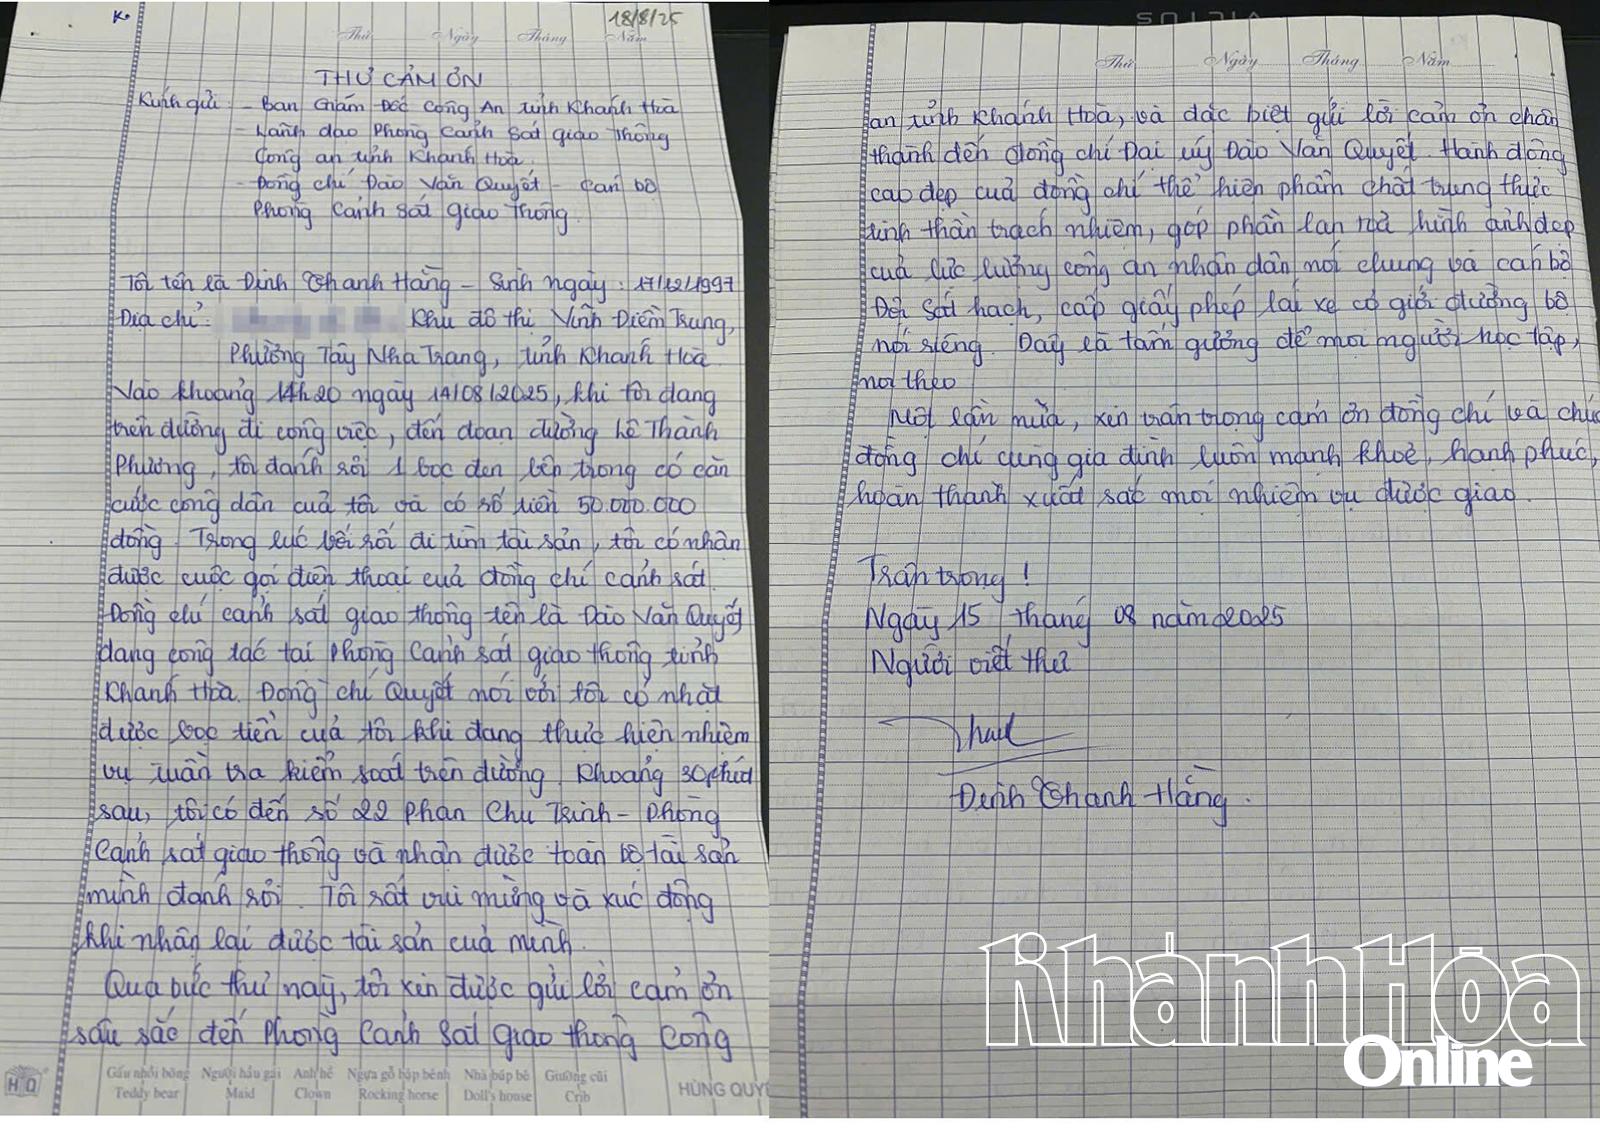 K.
18/8/25
Thứ Ngày Tháng Năm
THƯ CẢM ƠN
Kính gửi: - Ban Giám Đốc Công An tỉnh Khánh Hoà
- Lãnh đạo Phòng Cảnh sát giao thông
Công an tỉnh Khánh Hoà.
- Đồng chí Đào Văn Quyết - Cán bộ
Phòng Cảnh sát giao thông.
Tôi tên là Đinh Thanh Hằng - Sinh ngày: 17/12/1997
Địa chỉ: Khu đô thị Vĩnh Điềm Trung,
Phường Tây Nha Trang, tỉnh Khánh Hoà.
Vào khoảng 14h20 ngày 14/08/2025, khi tôi đang
trên đường đi công việc, đến đoạn đường Lê Thành
Phương, tôi đánh rơi 1 bọc đen bên trong có căn
cước công dân của tôi và có số tiền 50.000.000
đồng. Trong lúc bối rối đi tìm tài sản, tôi có nhận
được cuộc gọi điện thoại của đồng chí cảnh sát.
Đồng chí cảnh sát giao thông tên là Đào Văn Quyết
đang công tác tại Phòng Cảnh sát giao thông tỉnh
Khánh Hoà. Đồng chí Quyết nói với tôi có nhặt
được bọc tiền của tôi khi đang thực hiện nhiệm
vụ tuần tra kiểm soát trên đường. Khoảng 30 phút
sau, tôi có đến số 22 Phan Chu Trinh - Phòng
Cảnh sát giao thông và nhận được toàn bộ tài sản
mình đánh rơi. Tôi rất vui mừng và xúc động
khi nhận lại được tài sản của mình.
Qua bức thư này, tôi xin được gửi lời cảm ơn
sâu sắc đến Phòng Cảnh sát giao thông Công
HQ
Gấu nhồi bông Người hầu gái Anh hề Ngựa gỗ bập bênh Nhà búp bê Giường cũi
Teddy bear Maid Clown Rocking horse Doll's house Crib
HÙNG QUY
Thứ Ngày Tháng Năm
an tỉnh Khánh Hoà, và đặc biệt gửi lời cảm ơn chân
thành đến đồng chí Đại uý Đào Văn Quyết. Hành động
cao đẹp của đồng chí thể hiện phẩm chất trung thực
tinh thần trách nhiệm, góp phần lan toả hình ảnh đẹp
của lực lượng công an nhân dân nói chung và cán bộ
Đội Sát hạch, cấp giấy phép lái xe cơ giới đường bộ
nói riêng. Đây là tấm gương để mọi người học tập,
noi theo
Một lần nữa, xin trân trọng cảm ơn đồng chí và chúc
đồng chí cùng gia đình luôn mạnh khoẻ, hạnh phúc,
hoàn thành xuất sắc mọi nhiệm vụ được giao.
Trân trọng!
Ngày 15 tháng 08 năm 2025
Người viết thư
Đinh Thanh Hằng.
Khánh Hòa
Online